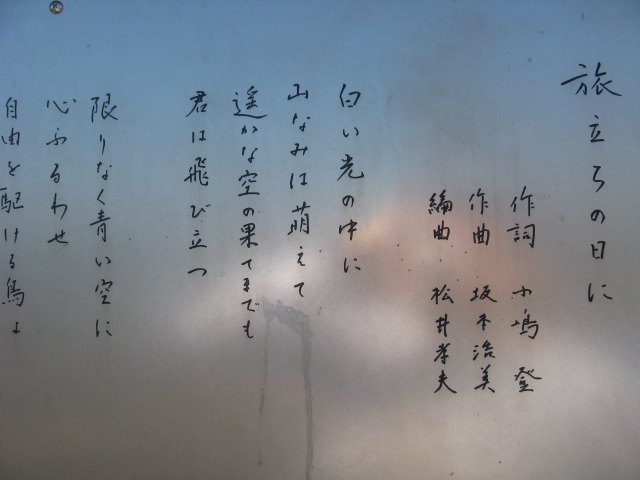 旅立ちの日に
作詞 小嶋 登
作曲 坂本浩美
編曲 松井孝夫
白い光の中に
山なみは萌えて
遥かな空の果てまでも
君は飛び立つ
限りなく青い空に
心ふるわせ
自由を駆ける鳥よ